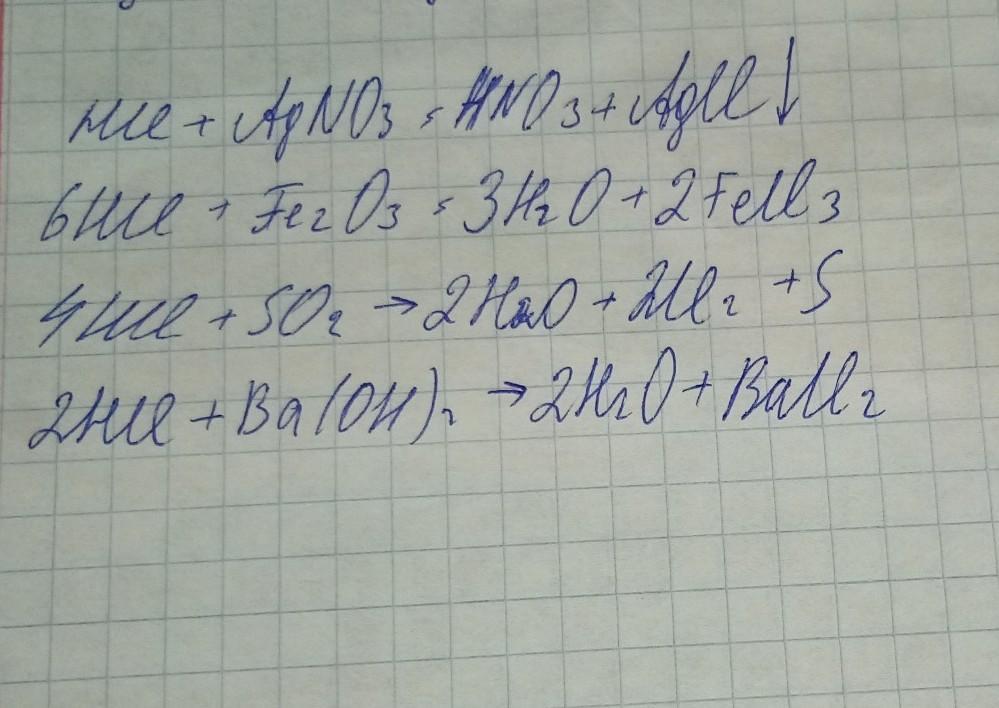 HCl + AgNO3 = HNO3 + AgCl↓
6HCl + Fe2O3 = 3H2O + 2FeCl3
4HCl + SO2 → 2H2O + 2Cl2 + S
2HCl + Ba(OH)2 → 2H2O + BaCl2